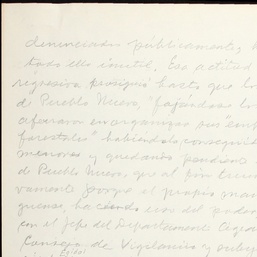 denunciados públicamente,
todo ello inútil. Esa actitud
regresiva prosiguió hasta que los
de Pueblo Nuevo,
afanaron en organizar sus "emp
forestales" habiéndolo conseguido
menores y quedando pendiente
de Pueblo Nuevo, que al fin
vamente porque el propio
grenas, haciendo uso del poder
con el jefe del Departamento Agra
Consejo de Vigilancia y
Ejidal